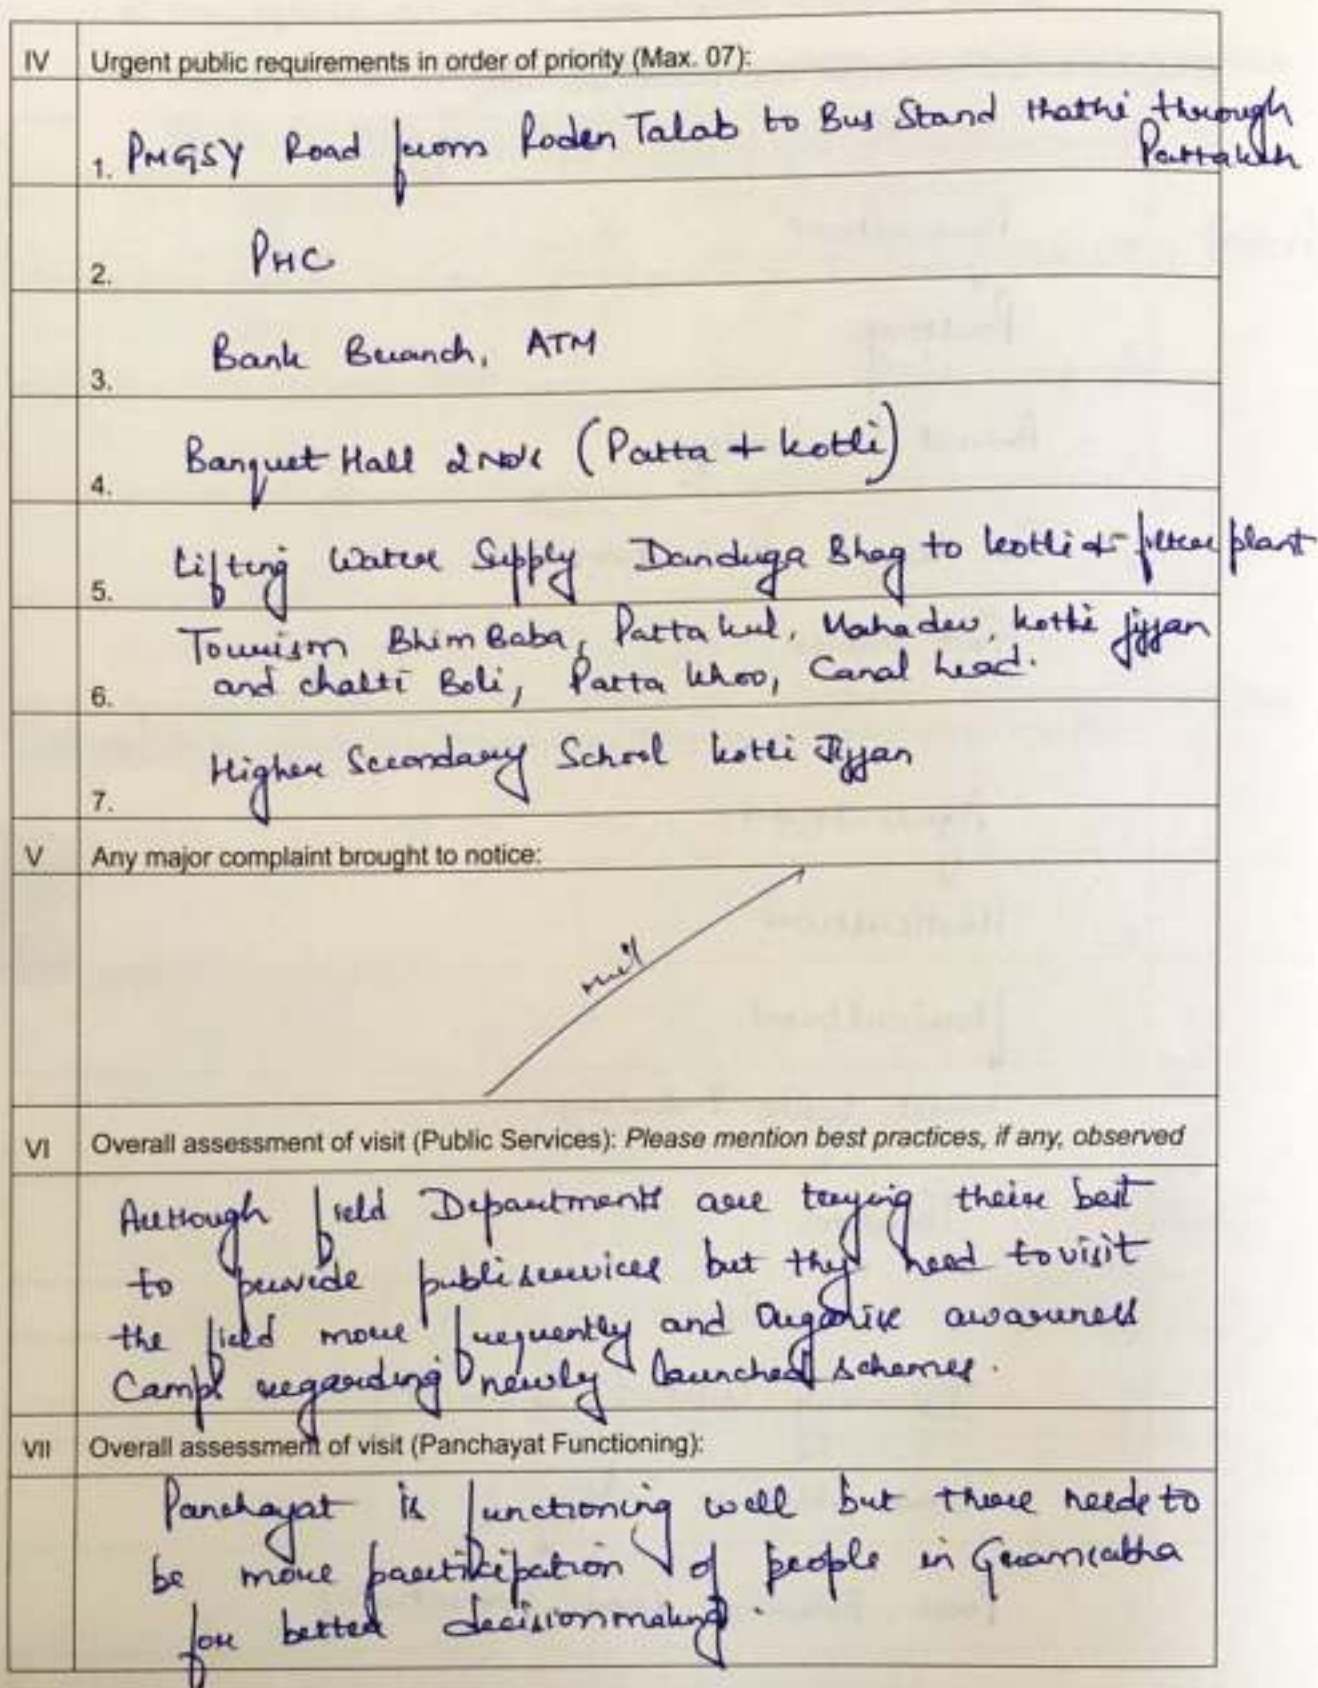 IV Urgent public requirements in order of priority (Max. 07):
1. PMGSY Road from Roden Talab to Bus Stand thathi through
Pattakuh
2. PHC
3. Bank Branch, ATM
4. Banquet Hall 2 No's (Patta + kotli)
5. Lifting Water Supply Danduga Bhag to kotli & filter plant
Tourism Bhim Baba, Patta kul, Mahadev, kotli jijjan
6. and chatti Boli, Patta khoo, Canal head.
7. Higher Secondary School kotli Jijjan
V Any major complaint brought to notice:
nil
VI Overall assessment of visit (Public Services): Please mention best practices, if any, observed
Although field Departments are trying their best
to provide publiservices but they need to visit
the field more frequently and Organise awareness
Camps regarding newly launched schemes.
VII Overall assessment of visit (Panchayat Functioning):
Panchayat is functioning well but there needs to
be more participation of people in Gramsabha
for better decision making.